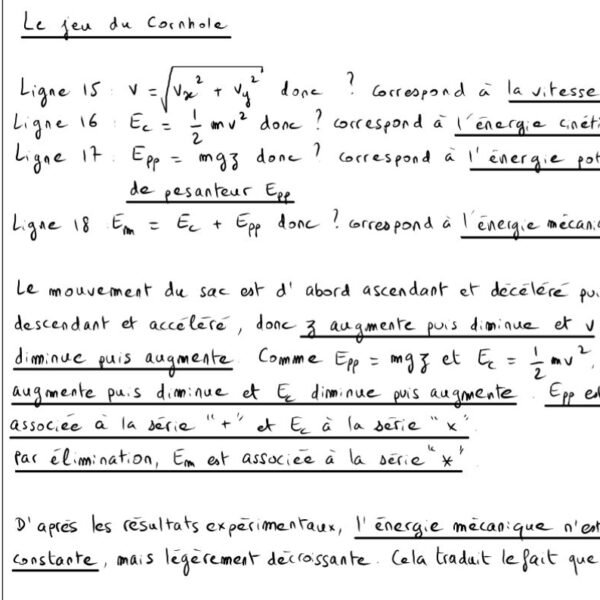 Le jeu du Cornhole
Ligne 15 : v = √(vx² + vy²) donc ? correspond à la vitesse
Ligne 16 : Ec = 1/2 mv² donc ? correspond à l'énergie cinéti
Ligne 17 : Epp = mgz donc ? correspond à l'énergie pot
de pesanteur Epp
Ligne 18 : Em = Ec + Epp donc ? correspond à l'énergie mécani
Le mouvement du sac est d'abord ascendant et décéléré pui
descendant et accéléré, donc z augmente puis diminue et v
diminue puis augmente. Comme Epp = mgz et Ec = 1/2 mv²,
augmente puis diminue et Ec diminue puis augmente. Epp es
associée à la série "+" et Ec à la série "x".
Par élimination, Em est associée à la série "*".
D'après les résultats expérimentaux, l'énergie mécanique n'est
constante, mais légèrement décroissante. Cela traduit le fait que